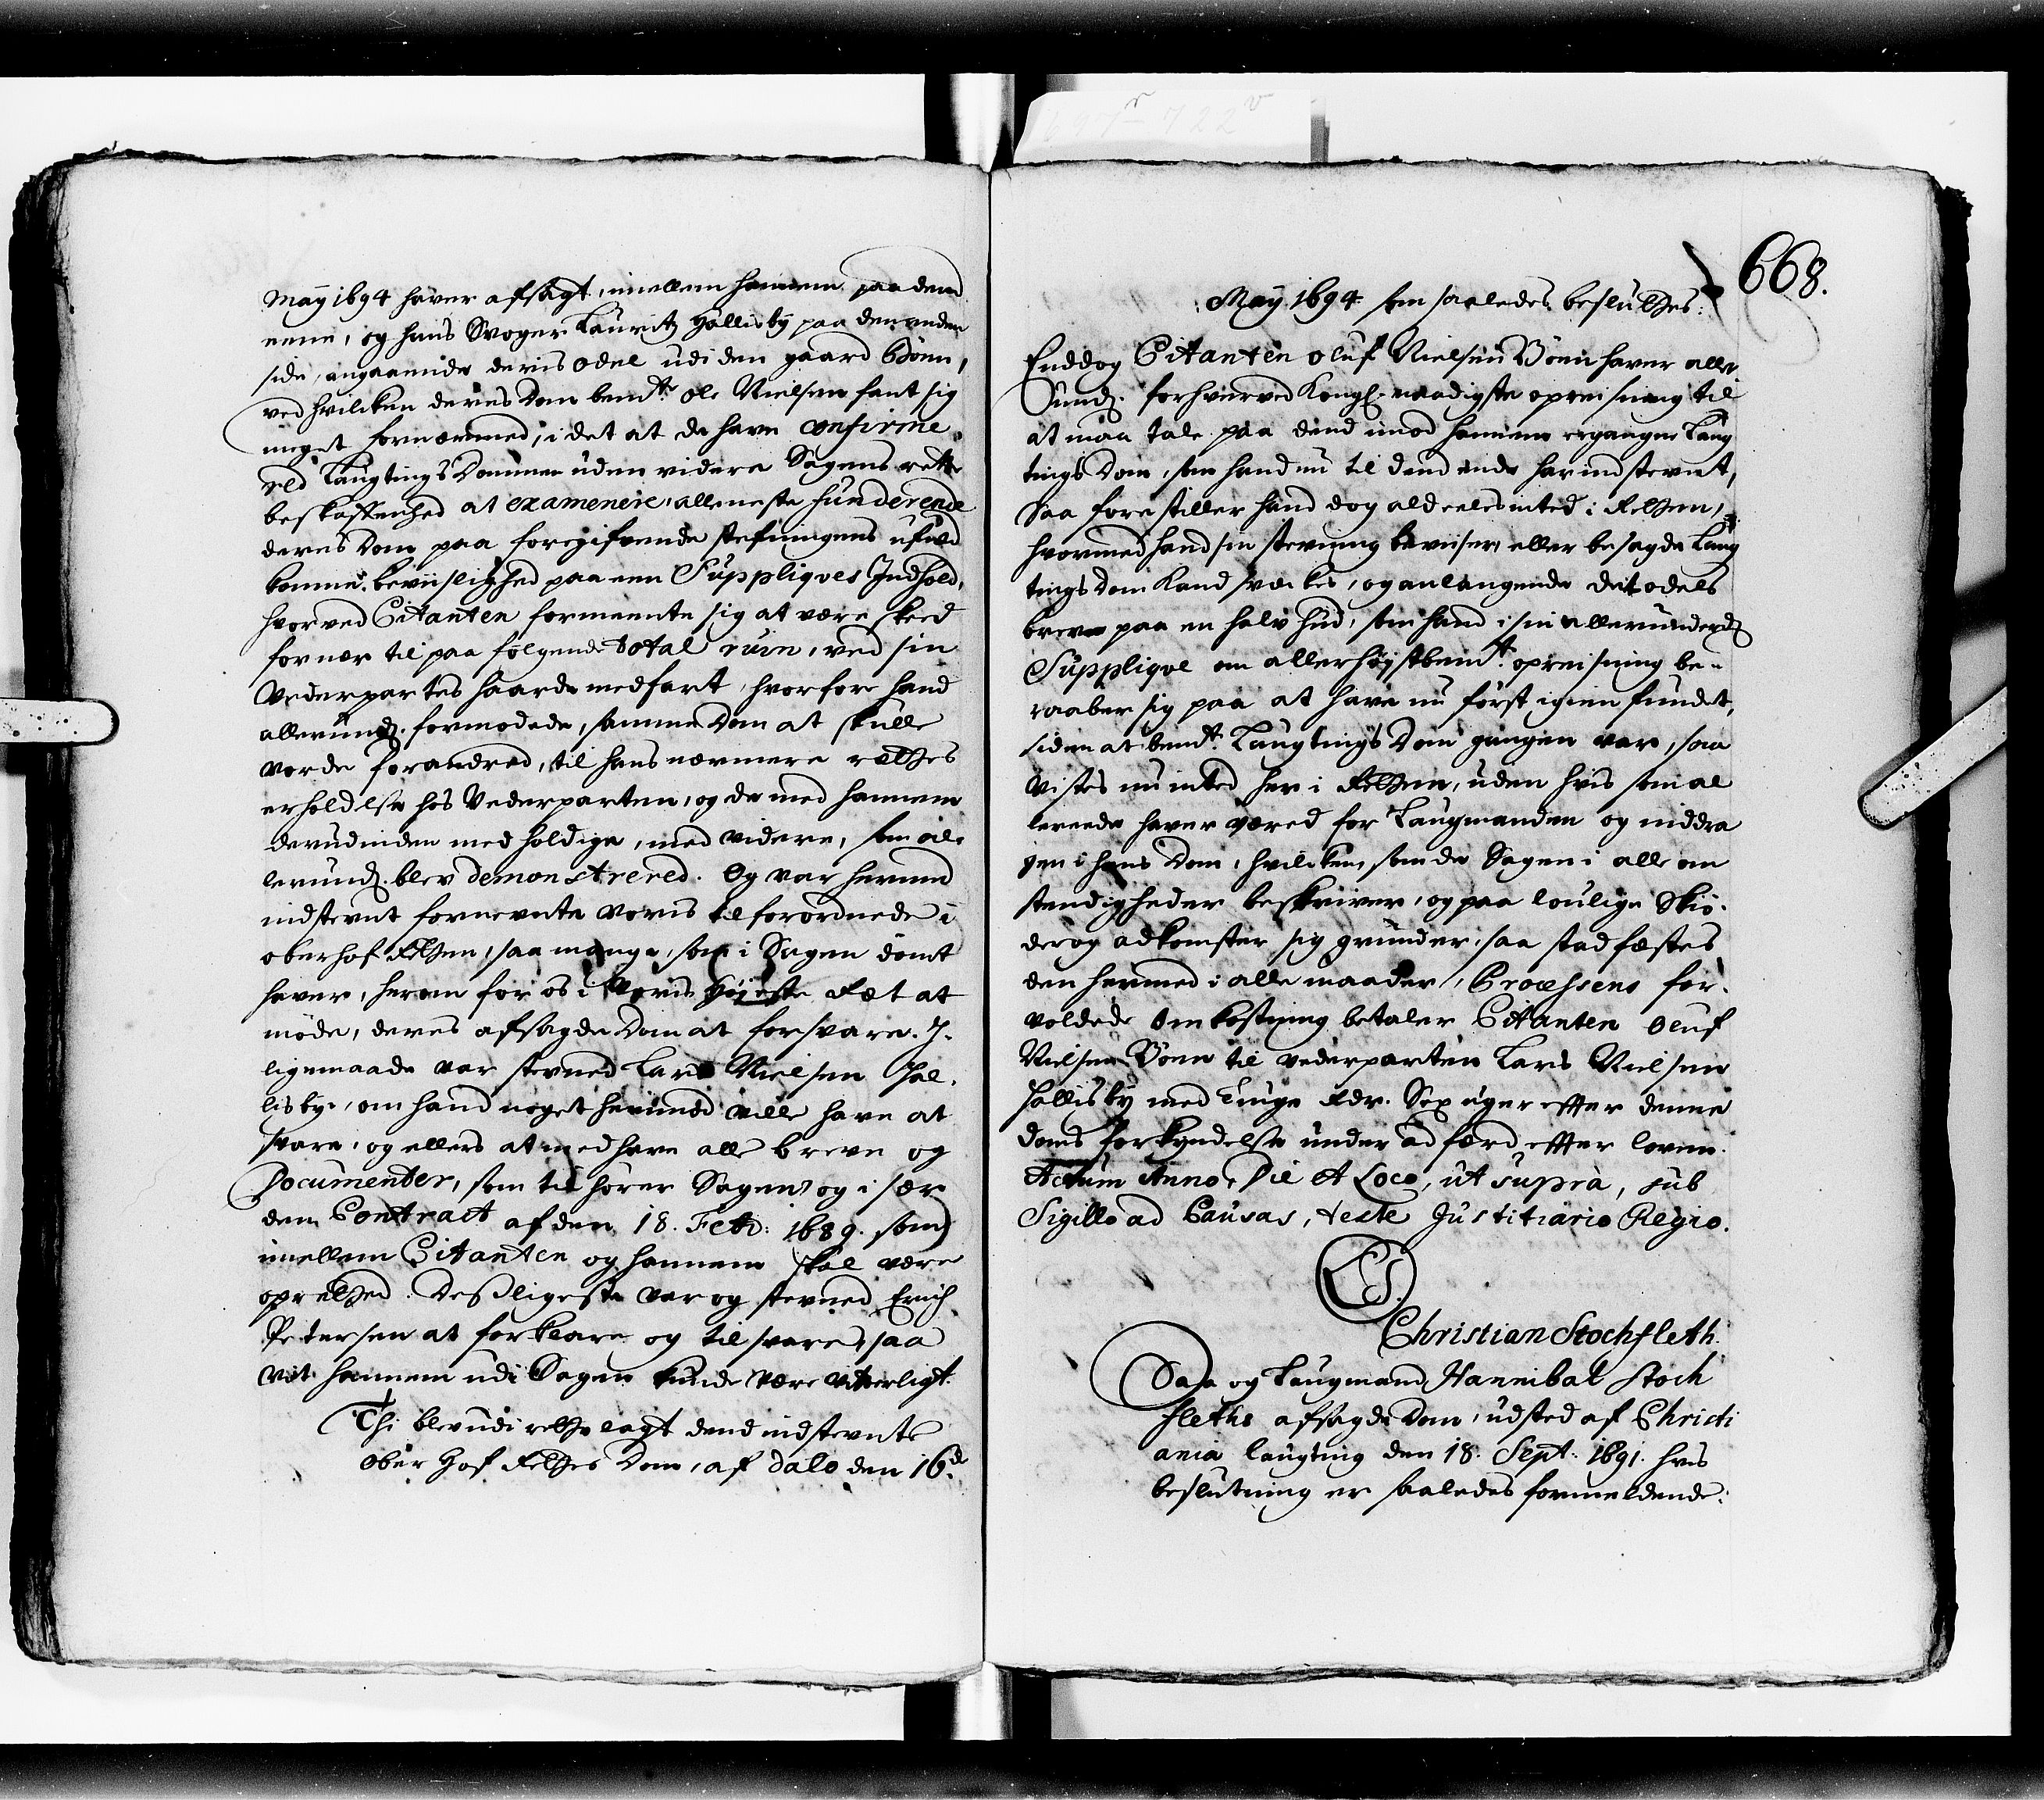 May 1694 haver afsagt, imellem hannem paa dend
eene, og hans Svoger Lauritz Hallisby paa den anden
side, angaaende deris odel udi den gaard Bönn,
ved hvilcken deres Dom bemte Ole Nielsen fant sig
meget fornærmed, i det at de have confirme
red Laugtings Dommen uden videre Sagens rette
beskaffenhed at examinere, alleneste funderende
deres Dom paa foregifvende stefningens ufuld
komne beviislighed paa een Suppliqves Indhold,
hvorved Citanten formeente sig at være skeed
for nær til paa følgende total ruin, ved sin
Vederpartes haarde medfart, hvorfore hand
allerunds. formodede, samme Dom at skulle
vorde forandred, til hans nærmere rettes
erholdelse hos Vederparten, og de med hannem
derudinden med holdige, med videre, som al
lerunds. blev demonstrered. Og var hermed
indstevnt fornevnte voris tilforordnede i
oberhof Retten, saa mange, som i Sagen dömt
haver, herom for os i Voris Höjeste Ret at
möde, deres afsagde Dom at forsvare. I
ligemaade var stevned Lars Nielsen Hal-
lisbye, om hand noget hermod ville have at
svare, og ellers at medhave alle breve og
Documenter, som til hörer Sagen, og i sær
den Contract af den 18. Febr: 1689. som
imellem Citanten og hannem skal være
opretted. Desligeste var og stevned Erich
Petersen at forklare og tilsvare, saa
vit hannem udi Sagen kunde være vitterligt.
Thi blev udi rette lagt dend indstevnte
Ober Hof Rettes Dom, af dato den 16d
697r - 722v
668.
May 1694 som saaledes besluttes:
Enddog Citanten Oluf Nielsen Bönn haver aller
Unds. forhverved Kongl. naadigste opreisning til
at maa tale paa dend imod hannem ergangne Laug
tings Dom, som hand nu til dend ende har indstevnt,
Saa forestiller hand dog aldeeles inted i Retten,
hvormed hand sin stevning beviiser, eller besagde Laug
tings Dom kand svækkes, og anlangende det odels
brev paa en halv hud, som hand i sin allerunderd.
Supplique om allerhøystbemt. opreisning be-
raaber sig paa at have nu först igien fundet,
siden at bemt. Laugtings Dom gangen var, saa
vistes nu inted her i Retten, uden hvis som al
lereede haver væred for Laugmanden og inddra
gen i hans Dom, hvilcken, som de Sagen i alle om
stendigheder beskriver, og paa lovlige Skiö-
der og adkomster sig grunder, saa stadfæstes
den hermed i alle maader, Processens for-
voldede Omkostning betaler Citanten Oluf
Nielsen Bönn til vederparten Lars Nielsen
Hallisby med Tiuge Rdr. Sex uger effter denne
doms forkyndelse under ad færd effter loven.
Actum Anno, Die et Loco, ut suprà, sub
Sigillo ad Causas, teste Justitiario Regio.
LS.
Christian Stochfleth.
Saa og Laugmand Hannibal Stoch
fleths afsagde Dom, udsted af Christi
ania laugting den 18. Sept: 1691. hvis
beslutning er saaledes formeldende: